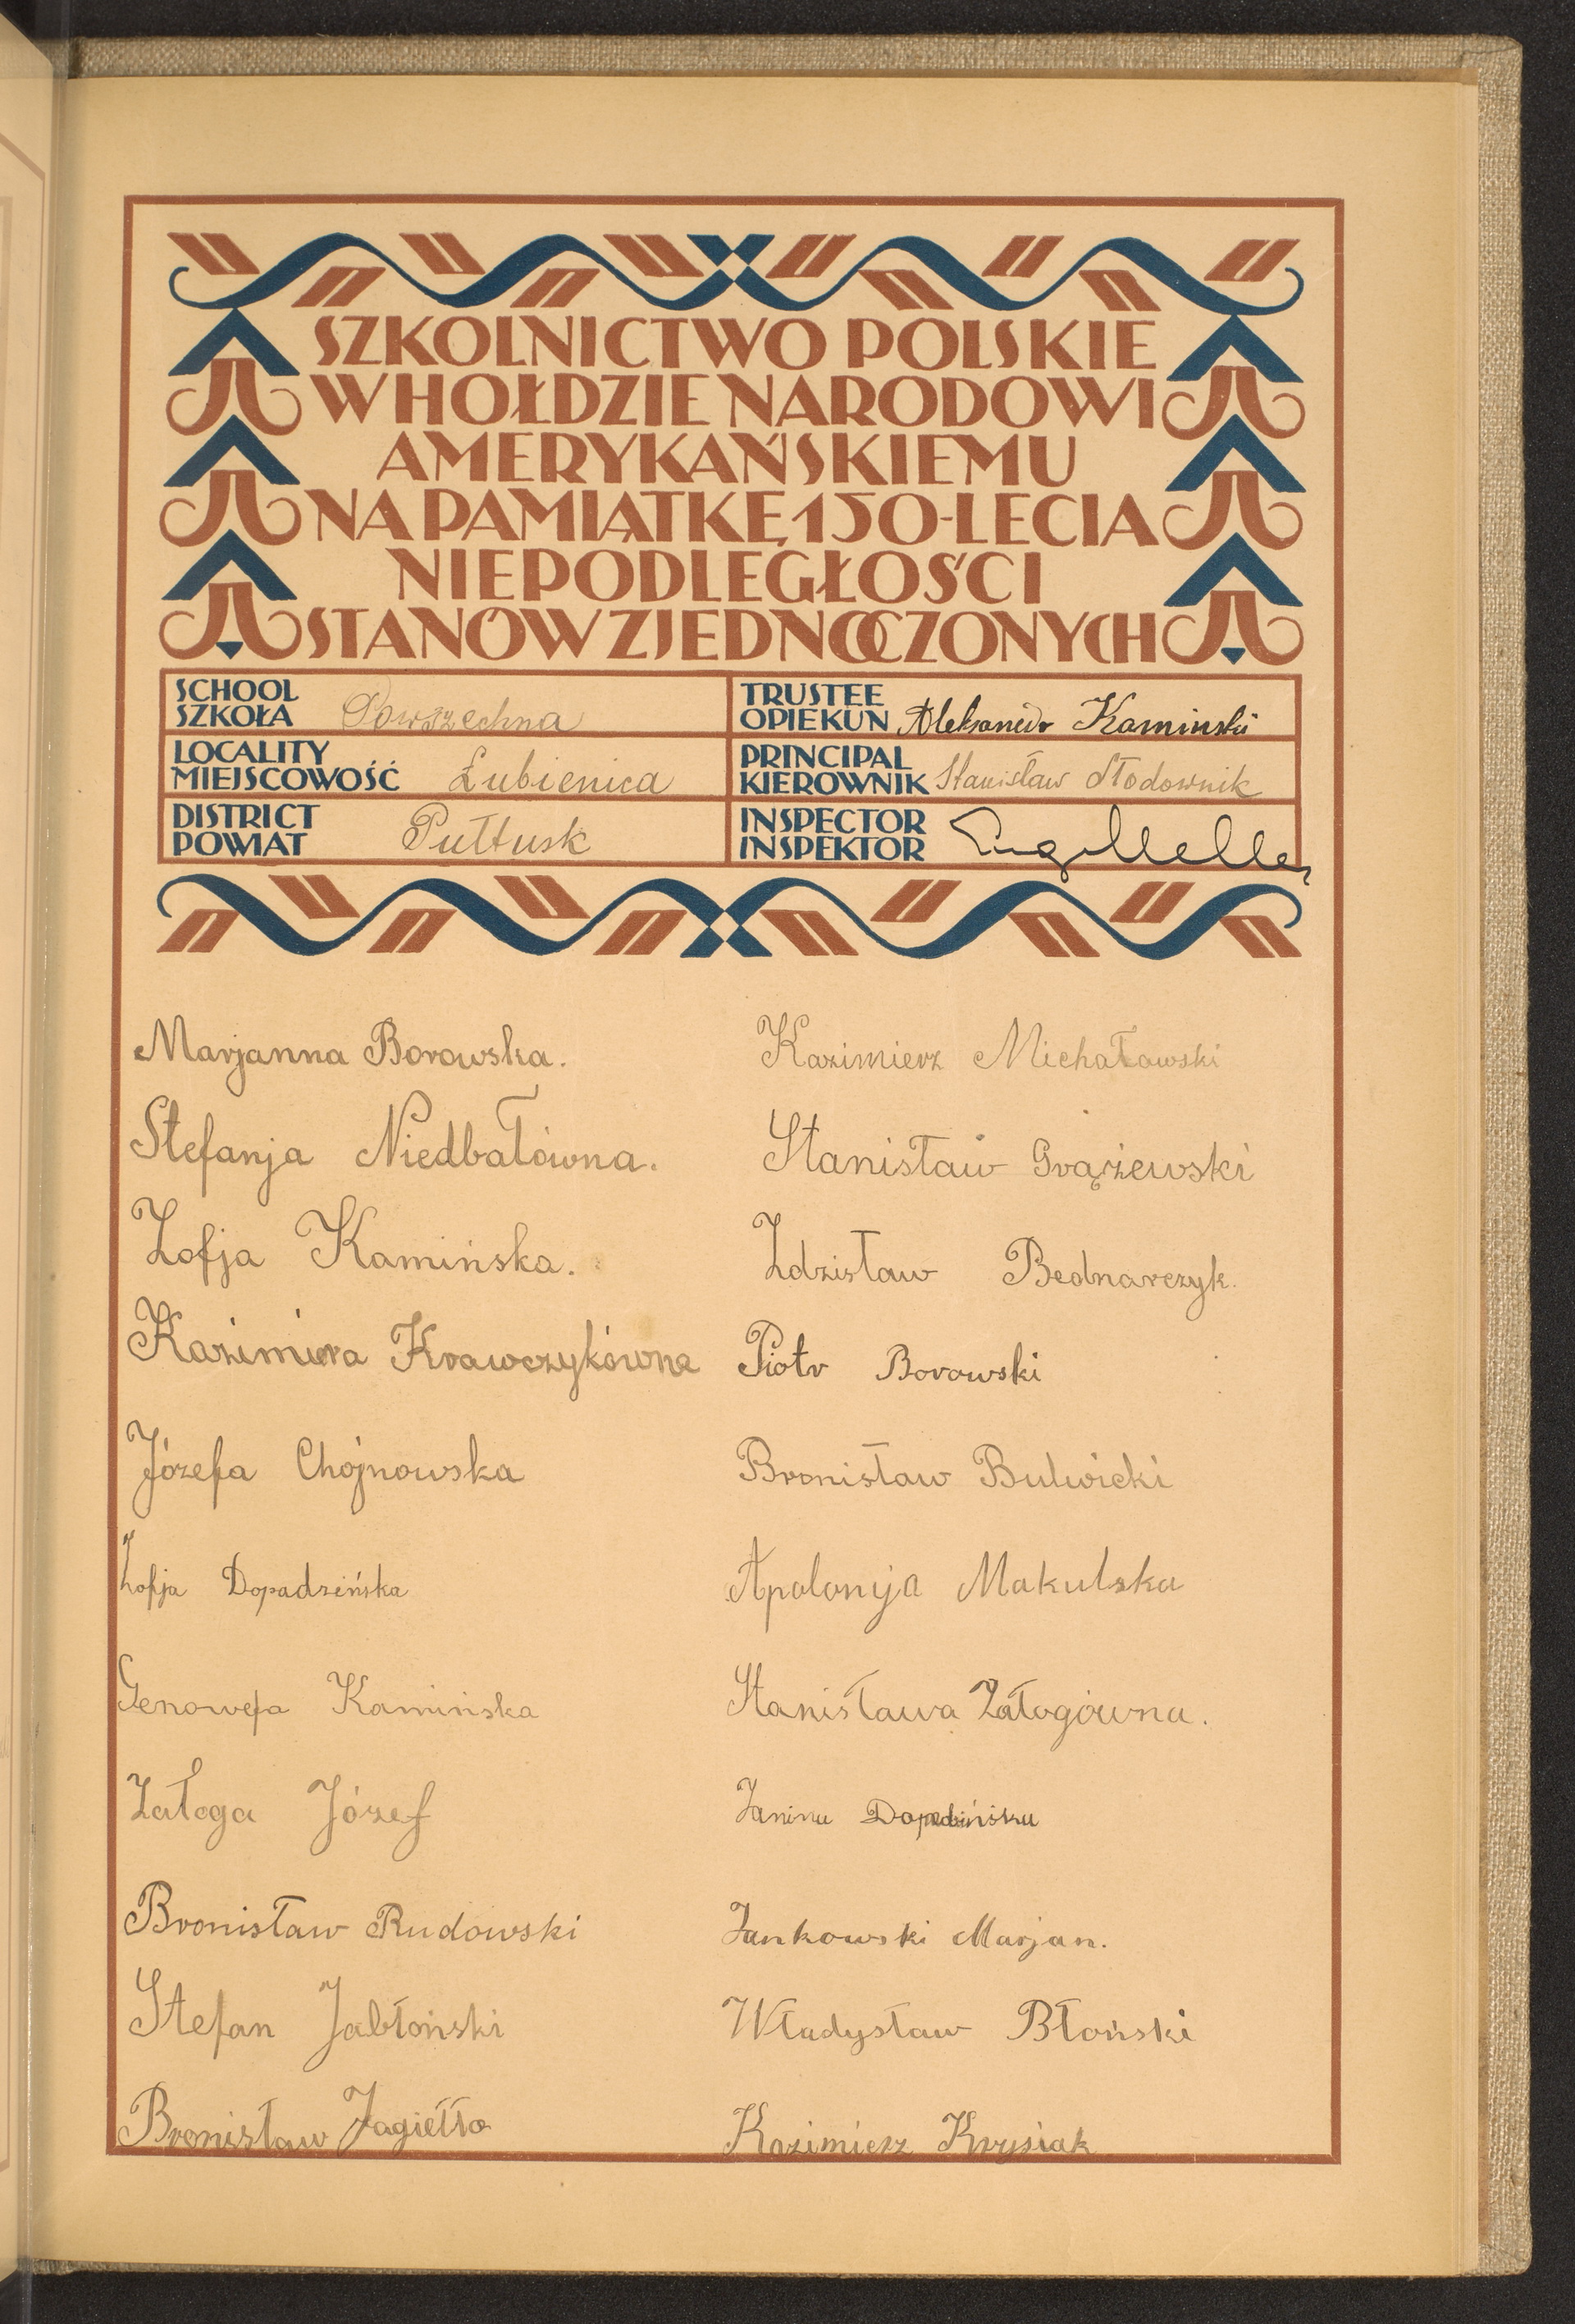 SZKOLNICTWO POLSKIE
W HOŁDZIE NARODOWI
AMERYKAŃSKIEMU
NA PAMIĄTKĘ 150-LECIA
NIEPODLEGŁOŚCI
STANÓW ZJEDNOCZONYCH
SCHOOL
SZKOŁA Powszechna
TRUSTEE
OPIEKUN Aleksander Kaminski
LOCALITY
MIEJSCOWOŚĆ Łubienica
PRINCIPAL
KIEROWNIK Stanisław Słodownik
DISTRICT
POWIAT Pułtusk
INSPECTOR
INSPEKTOR
Marjanna Borowska.
Stefanja Niedbałówna.
Zofja Kamińska.
Kazimiera Krawczykówna
Józefa Chójnowska
Zofja Dopadzińska
Genowefa Kamińska
Załoga Józef
Bronisław Rudowski
Stefan Jabłoński
Bronisław Jagiełło
Kazimierz Michałowski
Stanisław Grążewski
Zdzisław Bednarczyk.
Piotr Borowski
Bronisław Bulwicki
Apolonija Makulska
Stanisława Załogówna.
Janina
Jankowski Marjan.
Władysław Błoński
Kazimierz Krysiak